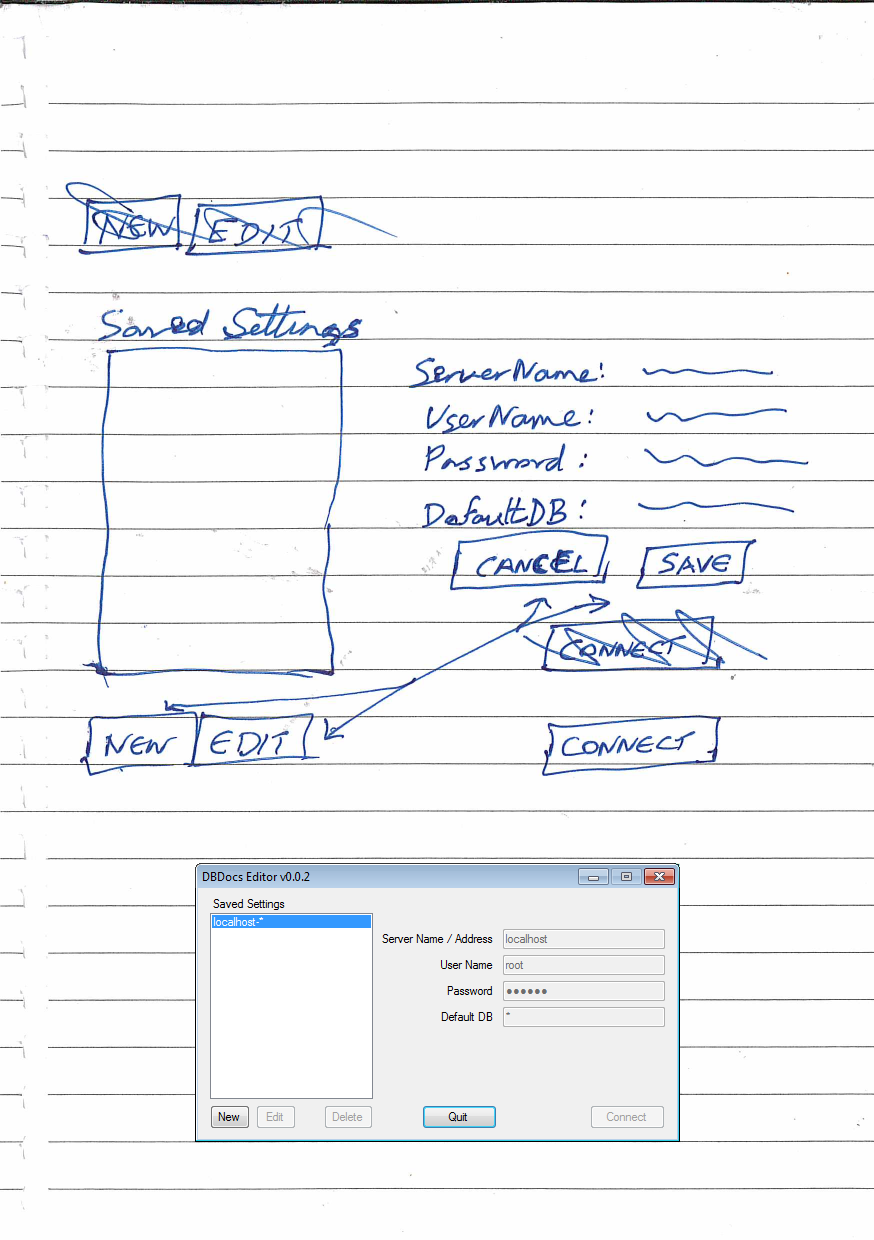 NEW EDIT
Saved Settings
ServerName:
UserName:
Password:
DefaultDB:
CANCEL SAVE
CONNECT
NEW EDIT CONNECT
DBDocs Editor v0.0.2
Saved Settings
localhost-*
Server Name / Address localhost
User Name root
Password ●●●●●●
Default DB *
New Edit Delete Quit Connect